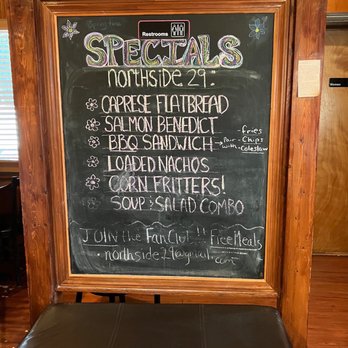 Restrooms
SPECIALS
northside 29:
CAPRESE FLATBREAD
SALMON BENEDICT
BBQ SANDWICH
- Fries
- Chips
- Coleslaw
LOADED NACHOS
CORN FRITTERS!
SOUP & SALAD COMBO
JOIN the Fan Club!! Free Meals
northside29@gmail.com